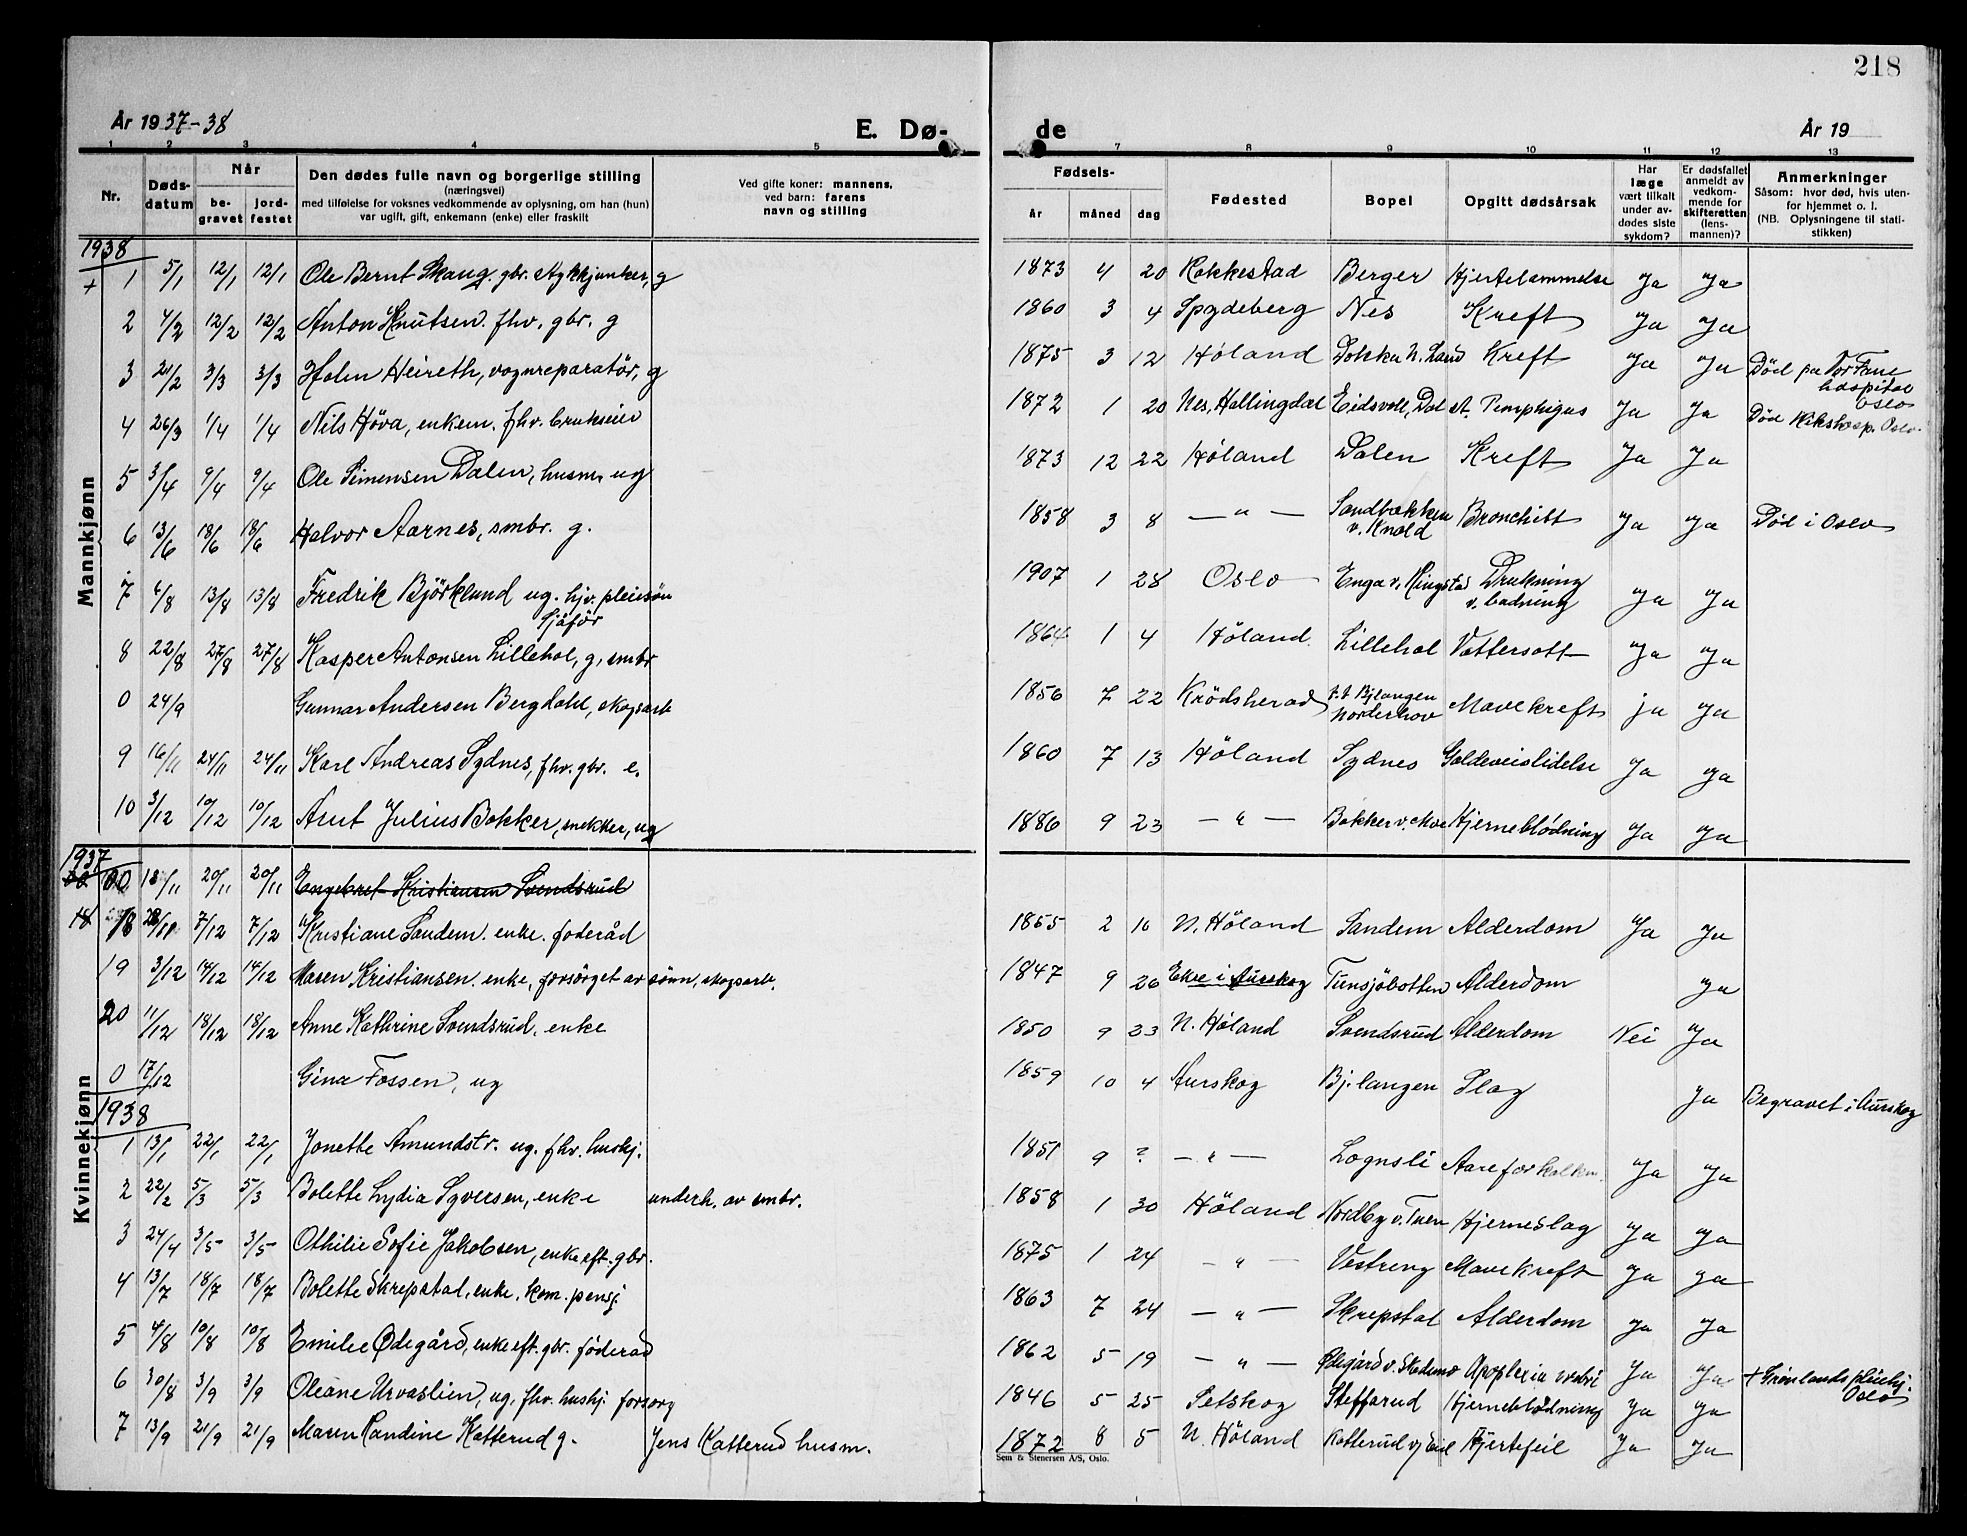 218
År 1937-38
E. Dø-
de
År 19
1 2 3 4 5
7 8 9 10 11 12 13
Nr. Døds-datum Når be-gravet jord-festet Den dødes fulle navn og borgerlige stilling (næringsvei) med tilføielse for voksnes vedkommende av oplysning, om han (hun) var ugift, gift, enkemann (enke) eller fraskilt Ved gifte koner: mannens, ved barn: farens navn og stilling
Fødsels- år måned dag Fødested Bopel Opgitt dødsårsak Har læge vært tilkalt under av-dødes siste sykdom? Er dødsfallet anmeldt av vedkom-mende for skifteretten (lens-mannen)? Anmerkninger Såsom: hvor død, hvis uten-for hjemmet o. l. (NB. Oplysningene til stati-stikken)
Mannkjønn
1938
+ 1 5/1 12/1 12/1 Ole Bernt Skaug. gbr. g 1873 4 20 Rakkestad Berger Hjertelammelse Ja Ja
2 4/2 12/2 12/2 Anton Knutsen. fhv. gbr. g 1860 3 4 Spydeberg Nes Kreft Ja Ja
3 21/2 3/3 3/3 Holm Heireth, vognreparatör, g 1875 3 12 Höland Dokka N. Land Kreft Ja Ja Död på Vor Frue hospital Oslo
4 26/3 1/4 1/4 Nils Höva, enkem. fhv. brukseier 1872 1 20 Nes, Hallingdal Eidsvoll, Dal st. Pemphigus Ja Ja Död Rikshosp. Oslo.
5 3/4 9/4 9/4 Ole Simensen Dalen, husm. ug 1873 12 22 Höland Dalen Kreft Ja Ja
6 13/6 18/6 18/6 Halvor Aarnes, smbr. g. 1858 3 8 — " — Sandbækken v. Knold Bronchitt Ja Ja Död i Oslo
7 4/8 13/8 13/8 Fredrik Björklund ug. hjv. pleiesön Sjåför 1907 1 28 Oslo Enga v. Ringstad Drukning v. badning Ja Ja
8 22/8 27/8 27/8 Kasper Antonsen Lillehol, g, smbr 1864 1 4 Höland. Lillehol Vattersott Ja Ja
0 24/9 Gunnar Andersen Bergdahl, skogsarb 1856 7 22 Krödsherad p.t Bjlangen Norderhov Mavekreft ja Ja
9 16/11 24/11 24/11 Karl Andreas Sydnes, fhv. gbr. e. 1860 7 13 Höland Sydnes Galdeveislidelse Ja Ja
10 3/12 10/12 10/12 Arnt Julius Bakker, snekker, ug 1886 9 23 — " — Bakker v. Mo Hjerneblödning Ja Ja
Kvinnekjønn
1937
00 18/11 20/11 20/11 Engebret Kristiansen Svendsrud
18 18 28/11 7/12 7/12 Kristiane Sandem. enke. foderåd 1855 2 16 N. Höland Sandem Alderdom Ja Ja
19 3/12 14/12 14/12 Maren Kristiansen. enke, forsörget av sönn, skogsarb. 1847 9 26 Ekre i Aurskog Tunsjöbotten Alderdom Ja
20 11/12 18/12 18/12 Anne Kathrine Svendsrud, enke 1850 9 23 N. Höland Svendsrud Alderdom Nei Ja
0 17/12 Gina Fossen, ug 1859 10 4 Aurskog Bj.langen Slag Ja Begravet i Aurskog
1938
1 13/1 22/1 22/1 Jonette Amundstr. ug. fhv. hushj. 1851 9 ? — " — Lognsli Aareforkalkn. Ja Ja
2 22/2 5/3 5/3 Bolette Lydia Syversen, enke underh. av smbr. 1858 1 30 Höland Nordby v. Tuen Hjerneslag Ja Ja
3 24/4 3/5 3/5 Othilie Sofie Jakobsen, enke eft. gbr. 1875 1 24 — " — Vestreng Mavekreft Ja Ja
4 13/7 18/7 18/7 Bolette Skrepstad, enke, kom. pensj. 1863 7 24 — " — Skrepstad Alderdom Ja Ja
5 4/8 10/8 10/8 Emilie Ødegård, enke eft. gbr. föderad 1862 5 19 — " — Ødegård v. Skedsmo Apoplexia cerebri Ja Ja
6 30/8 3/9 3/9 Oleane Urvaslien, ug, fhv. hushj. forsorg 1846 5 25 Setskog Steffarud Hjerneblödning Ja Ja + Grönlands pleiehj. Oslo
7 13/9 21/9 21/9 Maren Randine Katterud g. Jens Katterud husm. 1872 8 5 N. Höland Katterud v/ Eid Hjertefeil Ja Ja
Sem & Stenersen A/S, Oslo.